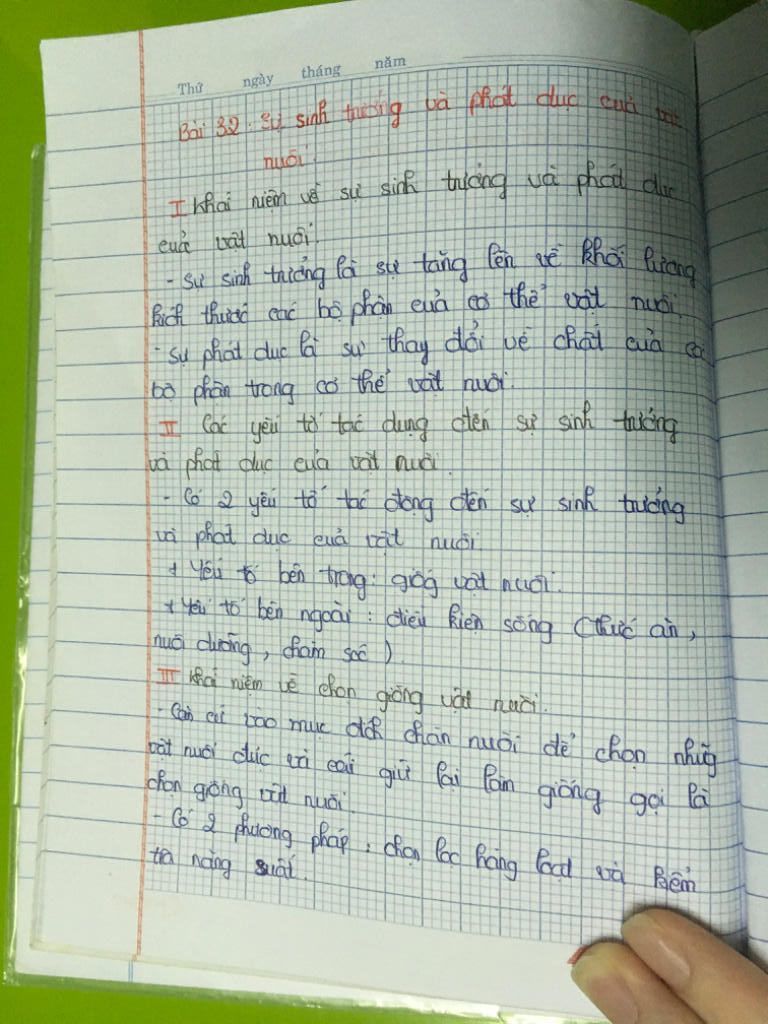 Thứ ngày tháng năm
Bài 32: Sự sinh trưởng và phát dục của vật
nuôi.
I Khái niệm về sự sinh trưởng và phát dục
của vật nuôi.
- Sự sinh trưởng là sự tăng lên về khối lượng
kích thước các bộ phận của cơ thể vật nuôi.
- Sự phát dục là sự thay đổi về chất của các
bộ phận trong cơ thể vật nuôi.
II Các yếu tố tác dụng đến sự sinh trưởng
và phát dục của vật nuôi.
- Có 2 yếu tố tác động đến sự sinh trưởng
và phát dục của vật nuôi.
+ Yếu tố bên trong: giống vật nuôi.
+ Yếu tố bên ngoài: điều kiện sống (thức ăn,
nuôi dưỡng, chăm sóc).
III Khái niệm về chọn giống vật nuôi.
- Căn cứ vào mục đích chăn nuôi để chọn những
vật nuôi đực và cái giữ lại làm giống gọi là
chọn giống vật nuôi.
- Có 2 phương pháp: chọn lọc hàng loạt và kiểm
tra năng suất.